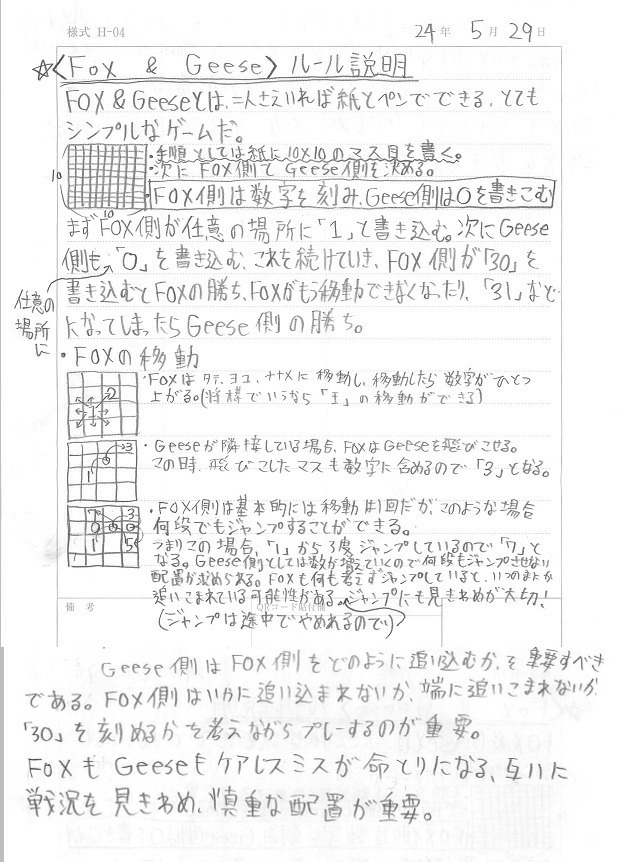 様式 H-04
24年 5月 29日
☆〈Fox & Geese〉ルール説明
FOX&Geeseとは、二人さえいれば紙とペンでできる、とても
シンプルなゲームだ。
・手順としては紙に10×10のマス目を書く。
・次にFOX側とGeese側を決める。
・FOX側は数字を刻み、Geese側は0を書きこむ
10
10
まずFOX側が任意の場所に「1」と書き込む。次にGeese
側も、「0」を書き込む、これを続けていき、FOX側が「30」を
任意の場所に
書き込むとFOXの勝ち、FOXがもう移動できなくなったり、「31」など
になってしまったらGeese側の勝ち。
・FOXの移動
2
1
・FOXはタテ、ヨコ、ナナメに移動し、移動したら数字がひとつ
上がる。(将棋でいうなら「王」の移動ができる)
3
1
・Geeseが隣接している場合、FOXはGeeseを飛びこせる。
この時、飛びこしたマスも数字に含めるので「3」となる。
7 3
0 0 0
1 5
・FOX側は基本的には移動は1回だが、このような場合
何段でもジャンプすることができる。
つまりこの場合、「1」から3度ジャンプしているので「7」と
なる。Geese側としては数が増えていくので何段もジャンプさせない
配置が求められる。FOXも何も考えずジャンプしていると、いつのまにか
追いこまれている可能性がある。ジャンプにも見きわめが大切!
(ジャンプは途中でやめれるので)
備 考
QRコード貼付欄
Geese側はFOX側をどのように追い込むか、を重要すべき
である。FOX側はいかに追い込まれないか、端に追いこまれないか
「30」を刻めるかを考えながらプレーするのが重要。
FOXもGeeseもケアレスミスが命とりになる、互いに
戦況を見きわめ、慎重な配置が重要。